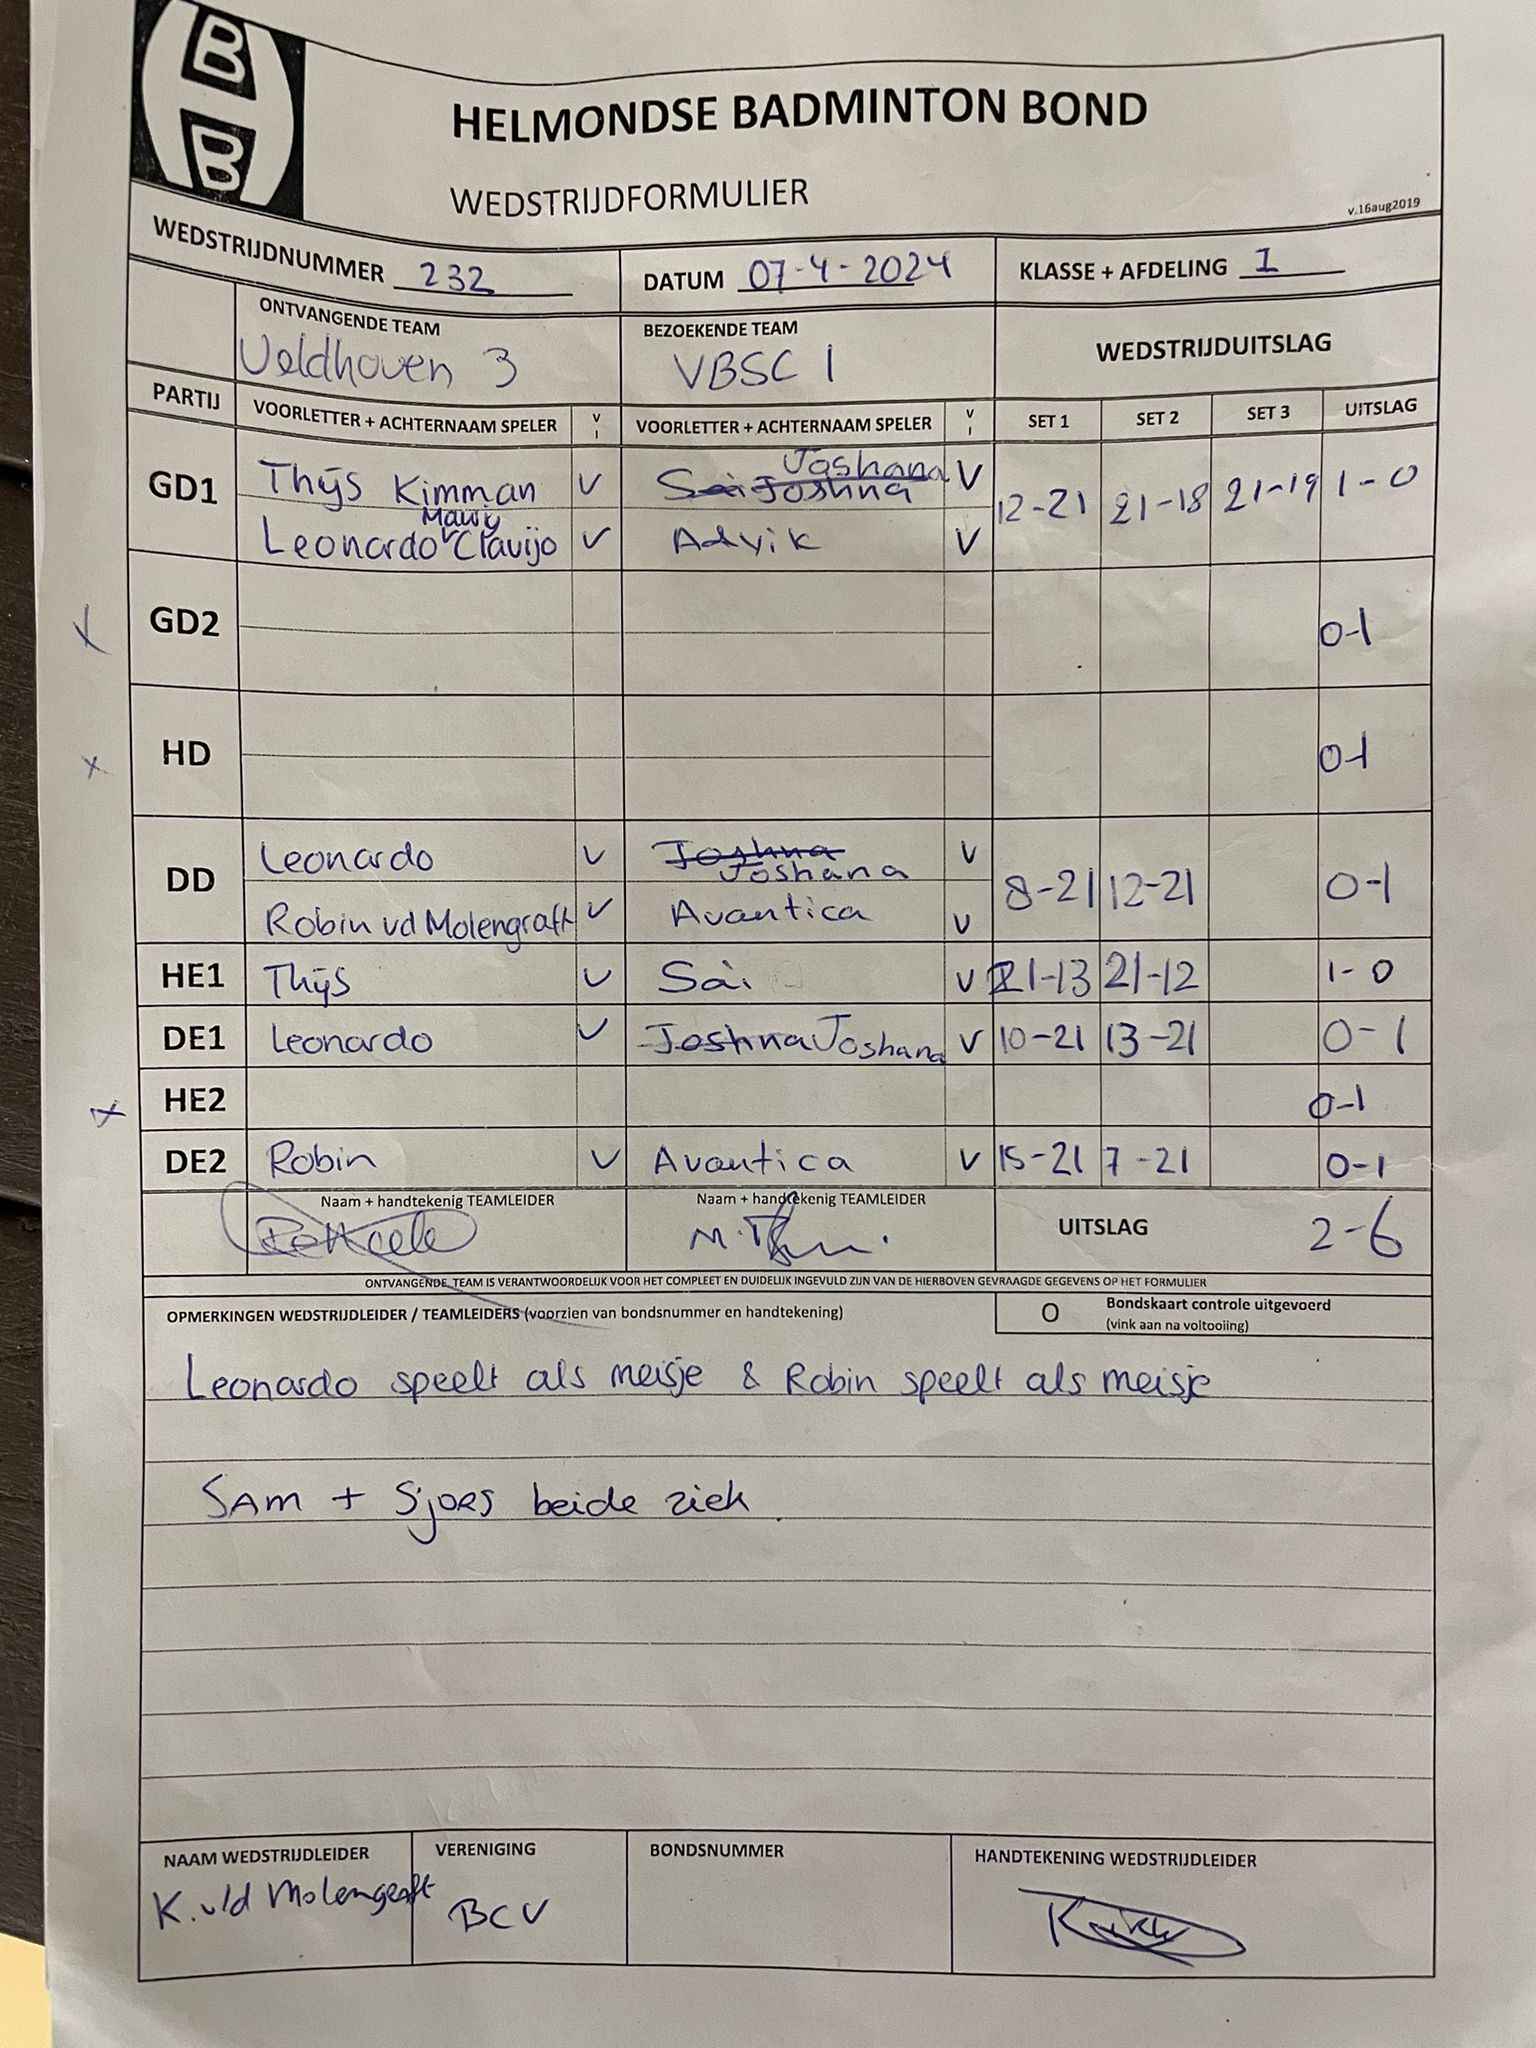 B
B
HELMONDSE BADMINTON BOND
WEDSTRIJDFORMULIER
v.16aug2019
WEDSTRIJDNUMMER 232 DATUM 07-4-2024 KLASSE + AFDELING 1
ONTVANGENDE TEAM BEZOEKENDE TEAM WEDSTRIJDUITSLAG
Veldhoven 3 VBSC 1
PARTIJ VOORLETTER + ACHTERNAAM SPELER V I VOORLETTER + ACHTERNAAM SPELER V I SET 1 SET 2 SET 3 UITSLAG
Joshana
GD1 Thijs Kimman V Sai Joshna V 12-21 21-18 21-19 1-0
Leonardo Clavijo V Advik V
GD2 0-1
HD 0-1
DD Leonardo V Joshna V 8-21 12-21 0-1
Joshana
Robin vd Molengraft V Avantica V
HE1 Thijs V Sai V 21-13 21-12 1-0
DE1 Leonardo V Joshna Joshana V 10-21 13-21 0-1
HE2 0-1
DE2 Robin V Avantica V 15-21 7-21 0-1
Naam + handtekenig TEAMLEIDER Naam + handtekenig TEAMLEIDER UITSLAG 2-6
ONTVANGENDE TEAM IS VERANTWOORDELIJK VOOR HET COMPLEET EN DUIDELIJK INGEVULD ZIJN VAN DE HIERBOVEN GEVRAAGDE GEGEVENS OP HET FORMULIER
OPMERKINGEN WEDSTRIJDLEIDER / TEAMLEIDERS (voorzien van bondsnummer en handtekening) O Bondskaart controle uitgevoerd
(vink aan na voltooiing)
Leonardo speelt als meisje & Robin speelt als meisje
SAM + SJORS beide ziek
NAAM WEDSTRIJDLEIDER VERENIGING BONDSNUMMER HANDTEKENING WEDSTRIJDLEIDER
K. v/d Molengraft BCV